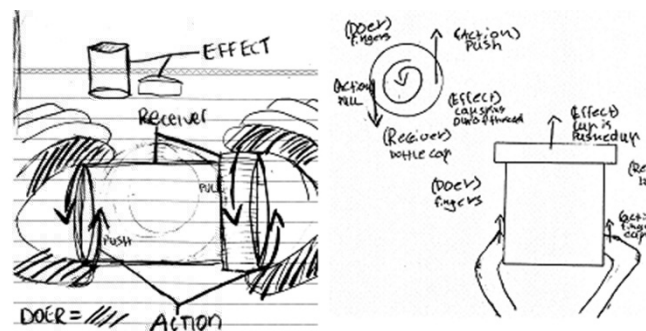 EFFECT
Receiver
PULL
PUSH
DOER =
ACTION
(Doer)
fingers
(Action)
Push
(Action)
PULL
(Effect)
cap spins
(Receiver)
bottle cap
(Effect)
cap is
pushed up
(Doer)
fingers
(Re
(acti
finge
cap